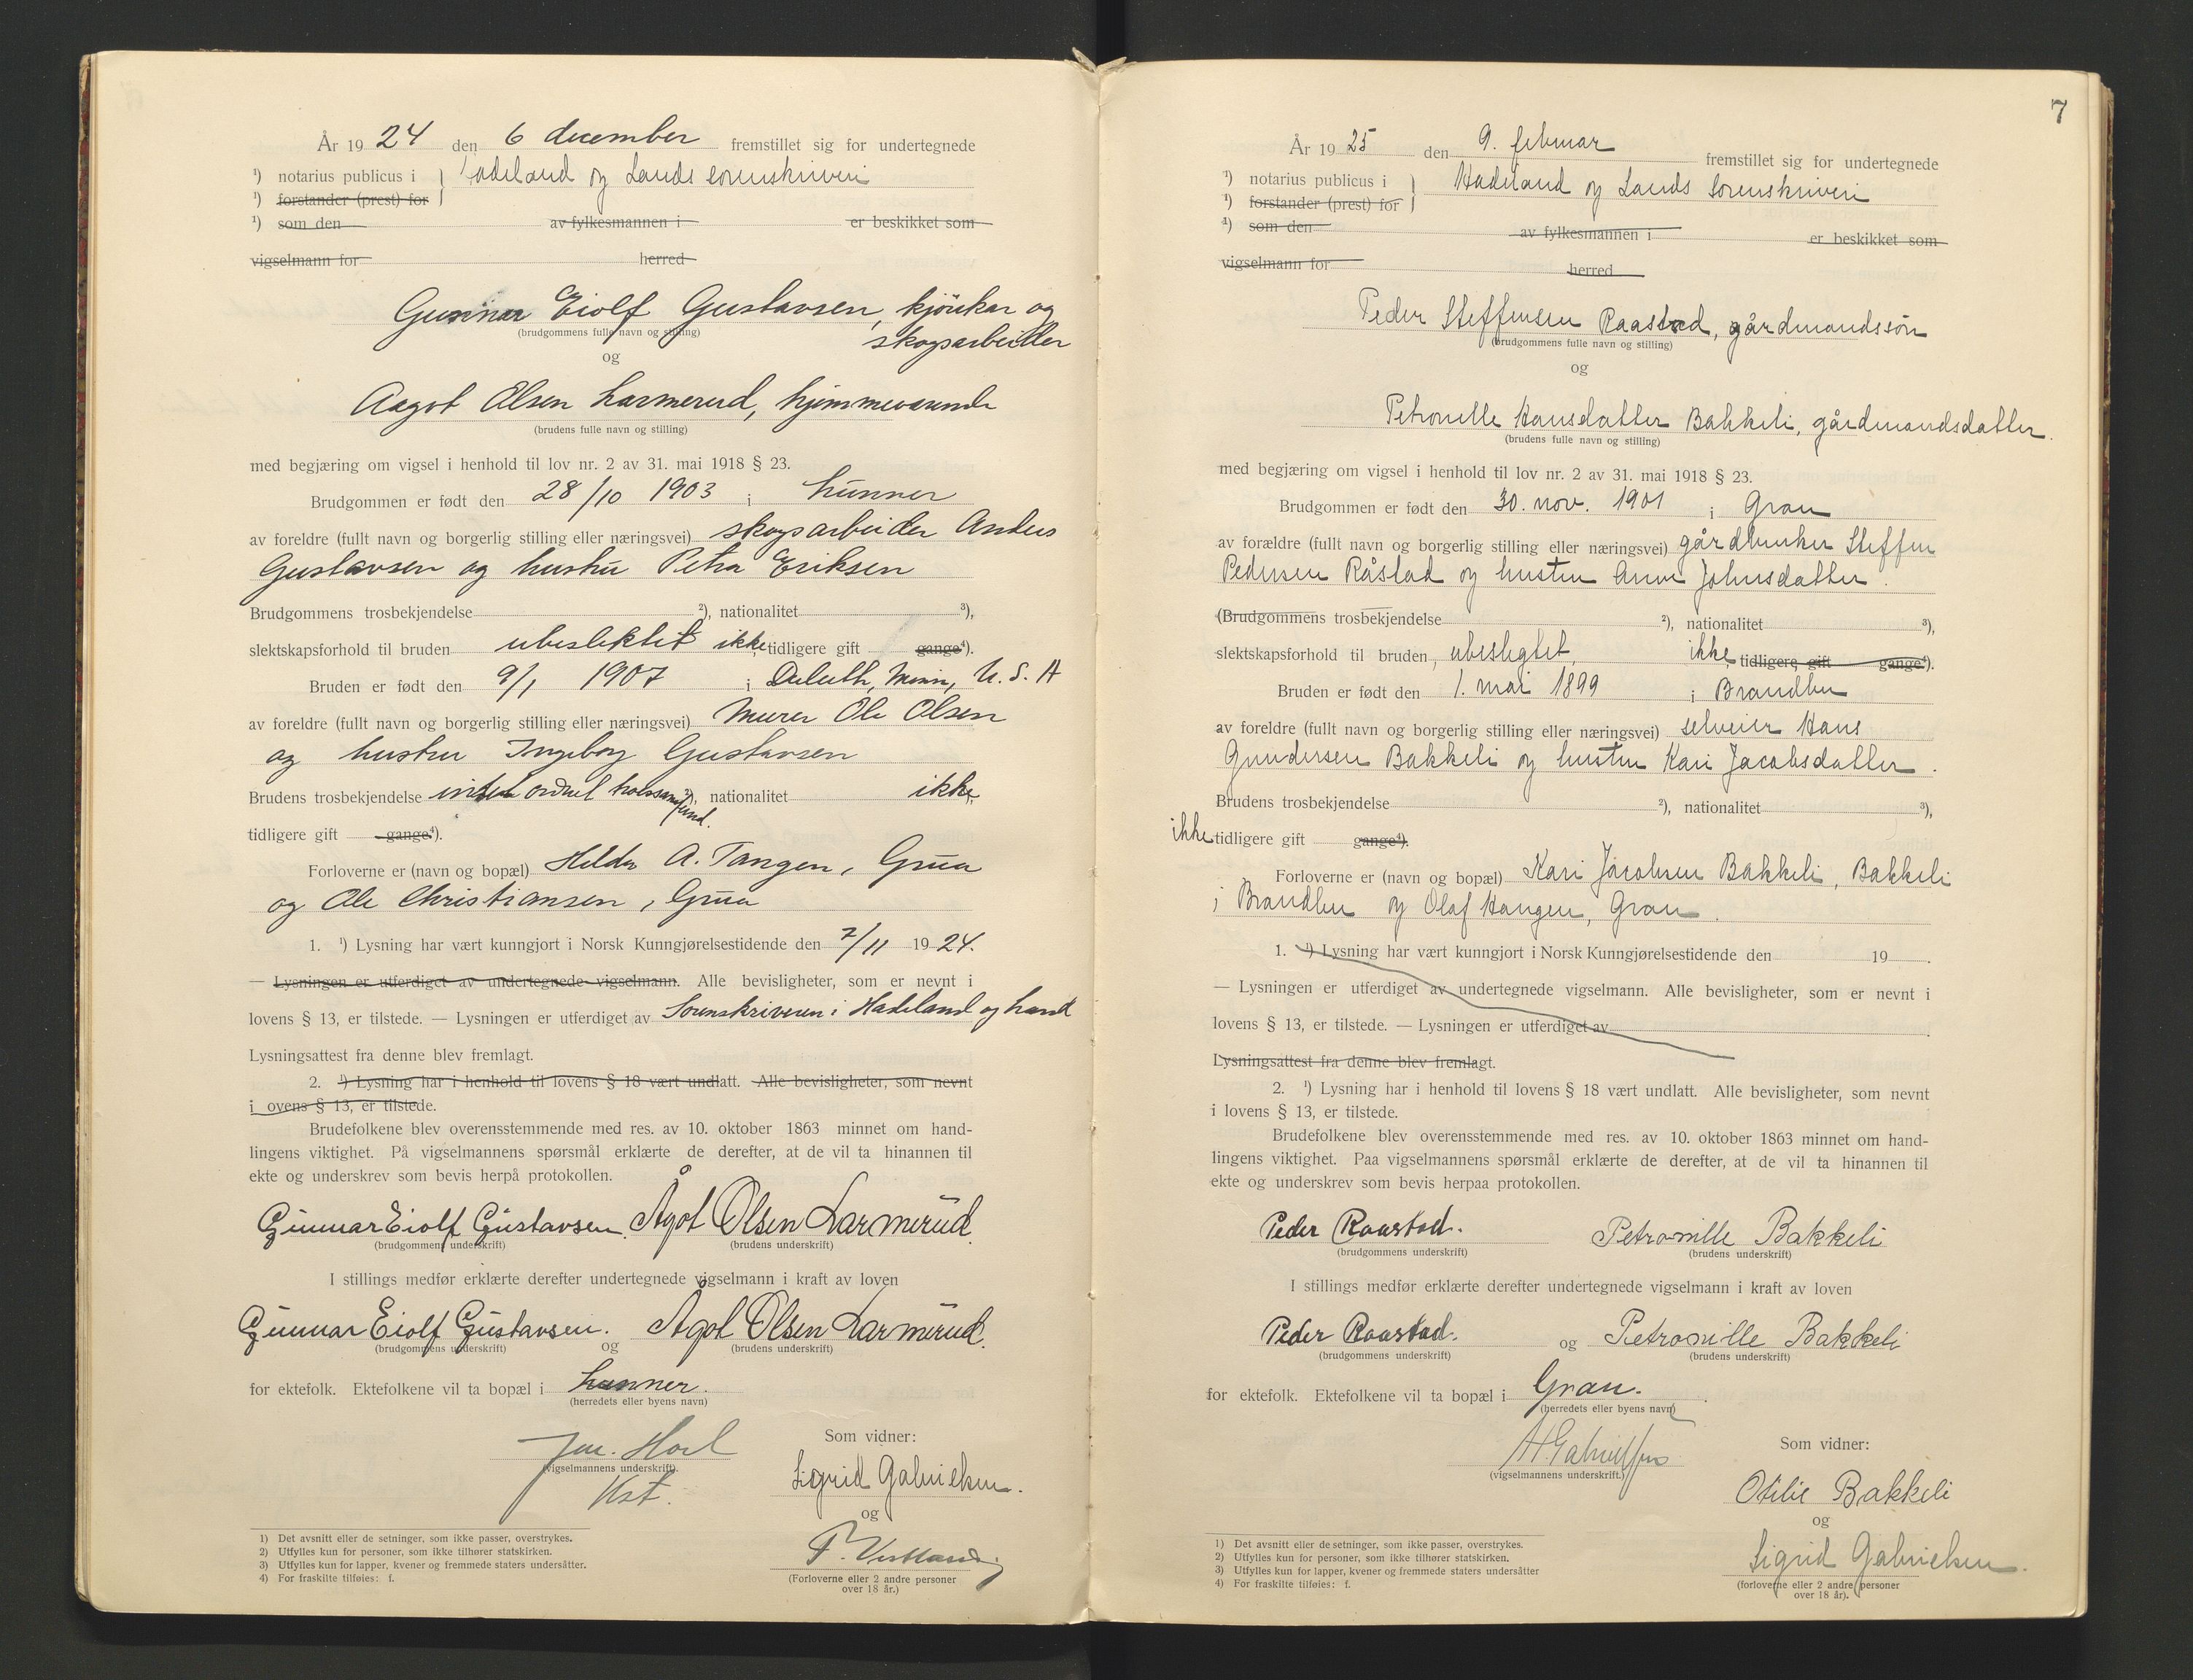 År 1924 den 6 december fremstillet sig for undertegnede
¹) notarius publicus i } Hadeland og Lands sorenskriveri
¹) forstander (prest) for
¹) som den av fylkesmannen i er beskikket som
vigselmann for herred
Gunnar Eiolf Gustavsen, kjörkar og
(brudgommens fulle navn og stilling) skogsarbeider
og
Aagot Olsen Larmerud, hjemmeværende
(brudens fulle navn og stilling)
med begjæring om vigsel i henhold til lov nr. 2 av 31. mai 1918 § 23.
Brudgommen er født den 28/10 1903 i Lunner
av foreldre (fullt navn og borgerlig stilling eller næringsvei) skogsarbeider Anders
Gustavsen og hustru Petra Eriksen
Brudgommens trosbekjendelse ²), nationalitet ³),
slektskapsforhold til bruden ubeslektet ikke tidligere gift gange⁴).
Bruden er født den 9/1 1907 i Duluth, Minn, U.S.A
av foreldre (fullt navn og borgerlig stilling eller næringsvei) Murer Ole Olsen
og hustru Ingeborg Gustavsen
Brudens trosbekjendelse intet ordnet trossamfund. ²), nationalitet ikke
tidligere gift gange⁴).
Forloverne er (navn og bopæl) Helda A. Tangen, Grua
og Ole Christiansen, Grua
1. ¹) Lysning har vært kunngjort i Norsk Kunngjørelsestidende den 7/11 1924.
— Lysningen er utferdiget av undertegnede vigselmann. Alle bevisligheter, som er nevnt i
lovens § 13, er tilstede. — Lysningen er utferdiget av Sorenskriveren i Hadeland og Land
Lysningsattest fra denne blev fremlagt.
2. ¹) Lysning har i henhold til lovens § 18 vært undlatt. Alle bevisligheter, som nevnt
i ovens § 13, er tilstede.
Brudefolkene blev overensstemmende med res. av 10. oktober 1863 minnet om hand-
lingens viktighet. På vigselmannens spørsmål erklærte de derefter, at de vil ta hinannen til
ekte og underskrev som bevis herpå protokollen.
Gunnar Eiolf Gustavsen. Ågot Olsen Larmerud.
(brudgommens underskrift) (brudens underskrift)
I stillings medfør erklærte derefter undertegnede vigselmann i kraft av loven
Gunnar Eiolf Gustavsen. og Ågot Olsen Larmerud.
(brudgommens underskrift) (brudens underskrift)
for ektefolk. Ektefolkene vil ta bopæl i Lunner.
(herredets eller byens navn)
Som vidner:
(vigselmannens underskrift).
Kst.
Sigrid Gabrielsen.
og
(Forloverne eller 2 andre personer
over 18 år.)
1) Det avsnitt eller de setninger, som ikke passer, overstrykes.
2) Utfylles kun for personer, som ikke tilhører statskirken.
3) Utfylles kun for lapper, kvener og fremmede staters undersåtter.
4) For fraskilte tilføies: f.
7
År 1925 den 9. februar fremstillet sig for undertegnede
¹) notarius publicus i } Hadeland og Lands Sorenskriveri
¹) forstander (prest) for
¹) som den av fylkesmannen i er beskikket som
vigselmann for herred
Peder Steffensen Raastad, gårdmandssön
(brudgommens fulle navn og stilling)
og
Petronelle Hansdatter Bakkeli, gårdmandsdatter.
(brudens fulle navn og stilling)
med begjæring om vigsel i henhold til lov nr. 2 av 31. mai 1918 § 23.
Brudgommen er født den 30. nov. 1901 i Gran
av forældre (fullt navn og borgerlig stilling eller næringsvei) gårdbruker Steffen
Pedersen Råstad og hustru Anne Johnsdatter.
(Brudgommens trosbekjendelse ²), nationalitet ³),
slektskapsforhold til bruden, ubeslegtet, ikke tidligere gift gange⁴).
Bruden er født den 1. mai 1899 i Brandbu
av foreldre (fullt navn og borgerlig stilling eller næringsvei) selveier Hans
Gundersen Bakkeli og hustru Kari Jacobsdatter.
Brudens trosbekjendelse ²), nationalitet ³),
ikke tidligere gift gange⁴).
Forloverne er (navn og bopæl) Kari Jacobsen Bakkeli, Bakkeli
i Brandbu og Olaf Haugen, Gran.
1. ¹) Lysning har vært kunngjort i Norsk Kunngjørelsestidende den 19 .
— Lysningen er utferdiget av undertegnede vigselmann. Alle bevisligheter, som er nevnt i
lovens § 13, er tilstede. — Lysningen er utferdiget av
Lysningsattest fra denne blev fremlagt.
2. ¹) Lysning har i henhold til lovens § 18 vært undlatt. Alle bevisligheter, som nevnt
i lovens § 13, er tilstede.
Brudefolkene blev overensstemmende med res. av 10. oktober 1863 minnet om hand-
lingens viktighet. Paa vigselmannens spørsmål erklærte de derefter, at de vil ta hinannen til
ekte og underskrev som bevis herpaa protokollen.
Peder Raastad. Petronille Bakkeli
(brudgommens underskrift) (brudens underskrift)
I stillings medfør erklærte derefter undertegnede vigselmann i kraft av loven
Peder Raastad. og Petronille Bakkeli
(brudgommens underskrift) (brudens underskrift)
for ektefolk. Ektefolkene vil ta bopæl i Gran.
(herredets eller byens navn)
Som vidner:
(vigselmannens underskrift.)
Otilie Bakkeli
og
Sigrid Gabrielsen.
(forloverne eller 2 andre personer
over 18 år).
1) Det avsnitt eller de setninger, som ikke passer, overstrykes.
2) Utfylles kun for personer, som ikke tilhører statskirken.
3) Utfylles kun for lapper, kvener og fremmede staters undersåtter
4) For fraskilte tilføies: f.